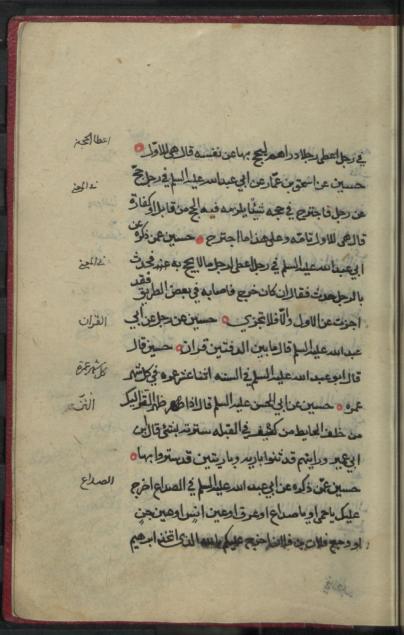 في رجل اعطى رجلا دراهم يحج بها عن نفسه قال هي للاول
حسين عن اسحق بن عمار عن ابي عبدالله عليه السلم في رجل حج
عن رجل فاجترح في حجه شيئا يلزمه فيه الحج من قابل او كفارة
قال هي للاول تامه وعلى هذا ما اجترح حسين عمن ذكره عن
ابي عبد الله عليه السلم في رجل اعطى لرجل ما لا يحج به عنه فحدث
بالرجل حدث فقال ان كان خرج فاصابه في بعض الطريق فقد
اجزت عن الاول والا فلا تجزي حسين عن رجل عن ابي
عبدالله عليه السلم قال ما بين الدفتين قران حسين قال
قال ابو عبد الله عليه السلم في السنه اثنا عشر عمره في كل شهر
عمره حسين عن ابي الحسن عليه السلم قال اذا ظهر
من خلف الحايط من كنيف في القبله سترته بشئ قال ابن
ابي عمير ورايتهم قد ثنوا باريه وباريتين قد ستروا بها
حسين عمن ذكره عن ابي عبد الله عليه السلم في الصداع اخرج
عليك يا حمى او يا صداع او عرق او عين انس او عين جن
او وجع فلان بن فلان اخرج عليكم بالله الذي اتخذ ابرهيم
القران
كل شهر عمره
الصداع